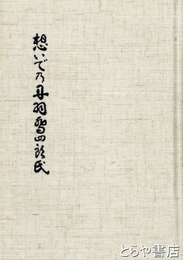 想いでの丹羽鋤四郎氏
とらや書店